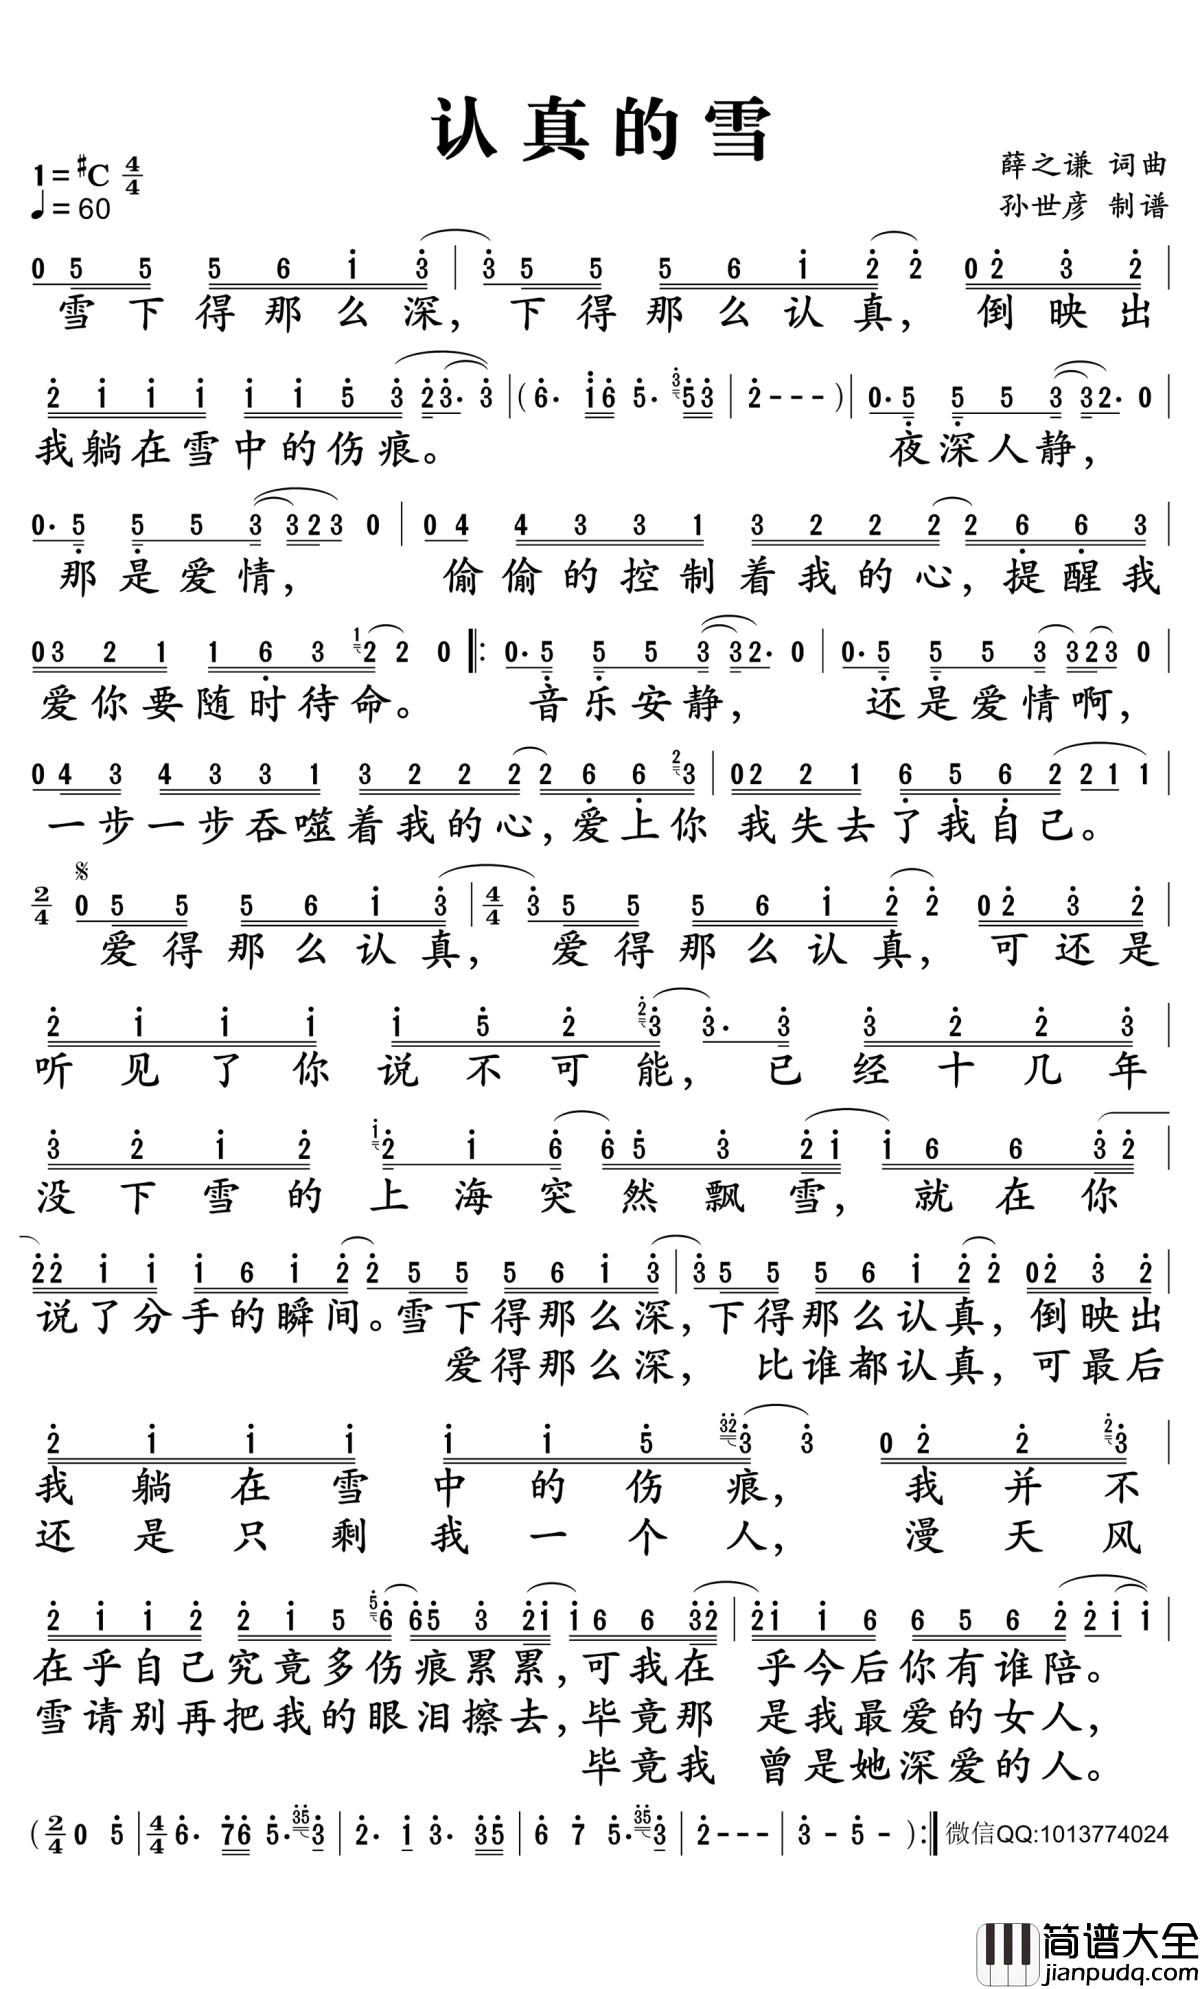 认真的雪
1=#C 4/4
♩=60
薛之谦 词曲
孙世彦 制谱
0 5 5 5 6 1 3 | 3 5 5 5 6 1 2 2 0 2 3 2 |
雪下得那么深，下得那么认真，倒映出
2 1 1 1 1 1 5 3 2 3· 3 | ( 6· 1 6 5· 3 5 3 | 2 - - - ) | 0· 5 5 5 3 3 2· 0 |
我躺在雪中的伤痕。 夜深人静，
0· 5 5 5 3 3 2 3 0 | 0 4 4 3 3 1 3 2 2 2 2 6 6 3 |
那是爱情， 偷偷的控制着我的心，提醒我
0 3 2 1 1 6 3 1 2 2 0 |: 0· 5 5 5 3 3 2· 0 | 0· 5 5 5 3 3 2 3 0 |
爱你要随时待命。 音乐安静， 还是爱情啊，
0 4 3 4 3 3 1 3 2 2 2 2 6 6 2 3 | 0 2 2 1 6 5 6 2 2 1 1 |
一步一步吞噬着我的心，爱上你 我失去了我自己。
2/4 𝄋 0 5 5 5 6 1 3 | 4/4 3 5 5 5 6 1 2 2 0 2 3 2 |
爱得那么认真，爱得那么认真，可还是
2 1 1 1 1 5 2 2 3 3· 3 3 2 2 3 |
听见了你说不可能，已经十几年
3 2 1 2 1 2 1 6 6 5 3 2 1 1 6 6 3 2 |
没下雪的上海突然飘雪，就在你
2 2 1 1 1 6 1 2 2 5 5 5 6 1 3 | 3 5 5 5 6 1 2 2 0 2 3 2 |
说了分手的瞬间。雪下得那么深，下得那么认真，倒映出
爱得那么深，比谁都认真，可最后
2 1 1 1 1 1 5 3 2 3 3 0 2 2 2 3 |
我躺在雪中的伤痕，我并不
还是只剩我一个人，漫天风
2 1 1 2 2 1 5 5 6 6 5 3 2 1 1 6 6 3 2 | 2 1 1 6 6 5 6 2 2 1 1 |
在乎自己究竟多伤痕累累，可我在 乎今后你有谁陪。
雪请别再把我的眼泪擦去，毕竟那 是我最爱的女人，
毕竟我 曾是她深爱的人。
( 2/4 0 5 | 4/4 6· 7 6 5· 3 5 3 | 2· 1 3· 3 5 | 6 7 5· 3 5 3 | 2 - - - | 3 - 5 - ) :| 微信QQ:1013774024
简谱大全
jianpudq.com